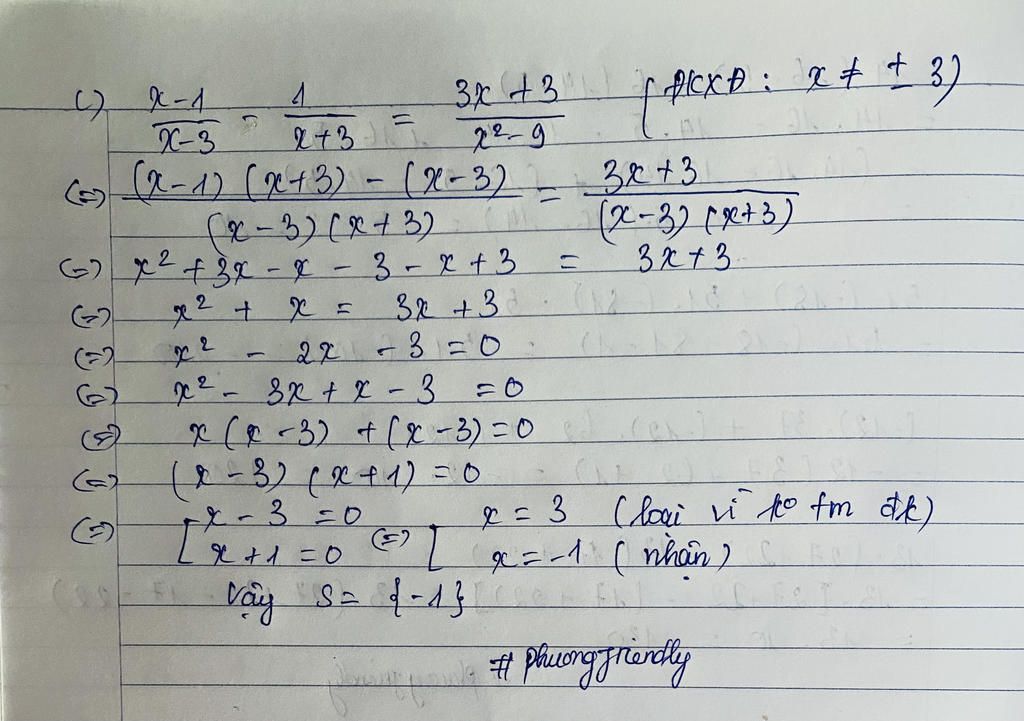 c) \frac{x-1}{x-3} - \frac{1}{x+3} = \frac{3x+3}{x²-9} (ĐKXĐ : x ≠ ± 3)
(=) \frac{(x-1) (x+3) - (x-3)}{(x-3) (x+3)} = \frac{3x+3}{(x-3) (x+3)}
(=) x² + 3x - x - 3 - x + 3 = 3x+3
(=) x² + x = 3x + 3
(=) x² - 2x - 3 = 0
(=) x² - 3x + x - 3 = 0
(=) x (x-3) + (x-3) = 0
(=) (x-3) (x+1) = 0
(=) [ x - 3 = 0 (=) [ x = 3 (loại vì ko tm đk)
x + 1 = 0 x = -1 (nhận)
Vậy S = {-1}
# phuongfriendly